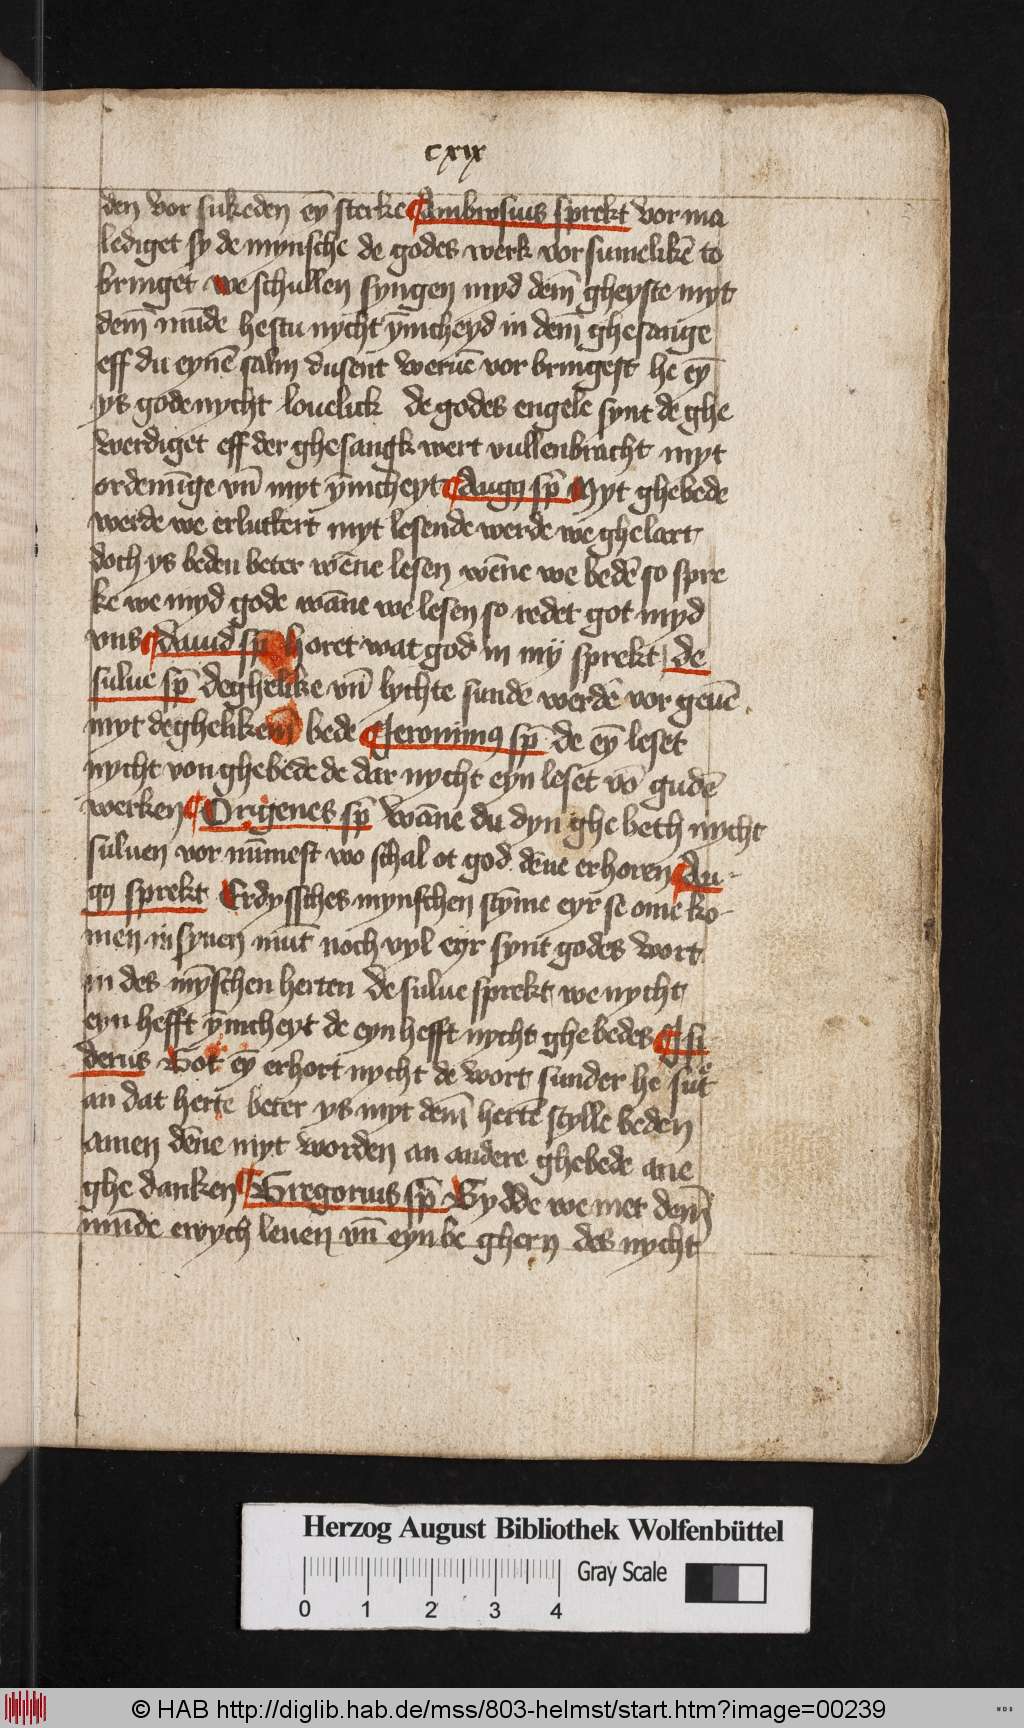 cxix
den vor sukeden eȳ sterke Ambrosius sprekt vor ma
lediget sy de mynsche de godes werk vorsumelikē to
bringet we schullen syngen myd dem̄ gheyste myt
dem̄ mūde hestu nycht ȳnicheyd in dem̄ ghesange
eff du eynē salm dusent weruē vor bringest he eȳ
ys gode nycht louelick de godes engele synt de ghe
werdiget eff der ghesangk wert vullenbracht myt
ordenīge vn̄ myt ȳnicheyt Augꝯ sp̄ Myt ghebede
werde we erluttert myt lesende werde we ghelart
doch ys beden beter wēne lesen wēne we bedē so spre
ke we myd gode wāne we lesen so redet got myd
vns dauid sp̄ horet wat god in my sprekt de
sulue sp̄ deghelike vn̄ lychte sunde werdē vor geuē
myt deghelikem bede Jeronimꝯ sp̄ de eȳ leset
nycht von ghebede de dar nycht eyn leset vō gudē
werken Origenes sp̄ wāne du dyn ghe beth nycht
suluen vor nūmest wo schal ot god dēne erhoren Au
gꝯ sprekt Erdyssches mynschen stȳme eyr se ome ko
men in synen mūt noch vyl eyr synt godes wort
in des mȳschen herten de sulue sprekt we nycht
eyn hefft ȳnicheyt de eyn hefft nycht ghe bedes Isi
derus Got eȳ erhort nycht de wort sunder he sut
an dat herte beter ys myt dem̄ hertē stylle beden
amen dēne myt worden an andere ghebede ane
ghe danken Gregorius sp̄ Bydde we met dem̄
mūde ewych leuen vn̄ eyn be ghern des nycht
Herzog August Bibliothek Wolfenbüttel
Gray Scale
0 1 2 3 4
© HAB http://diglib.hab.de/mss/803-helmst/start.htm?image=00239